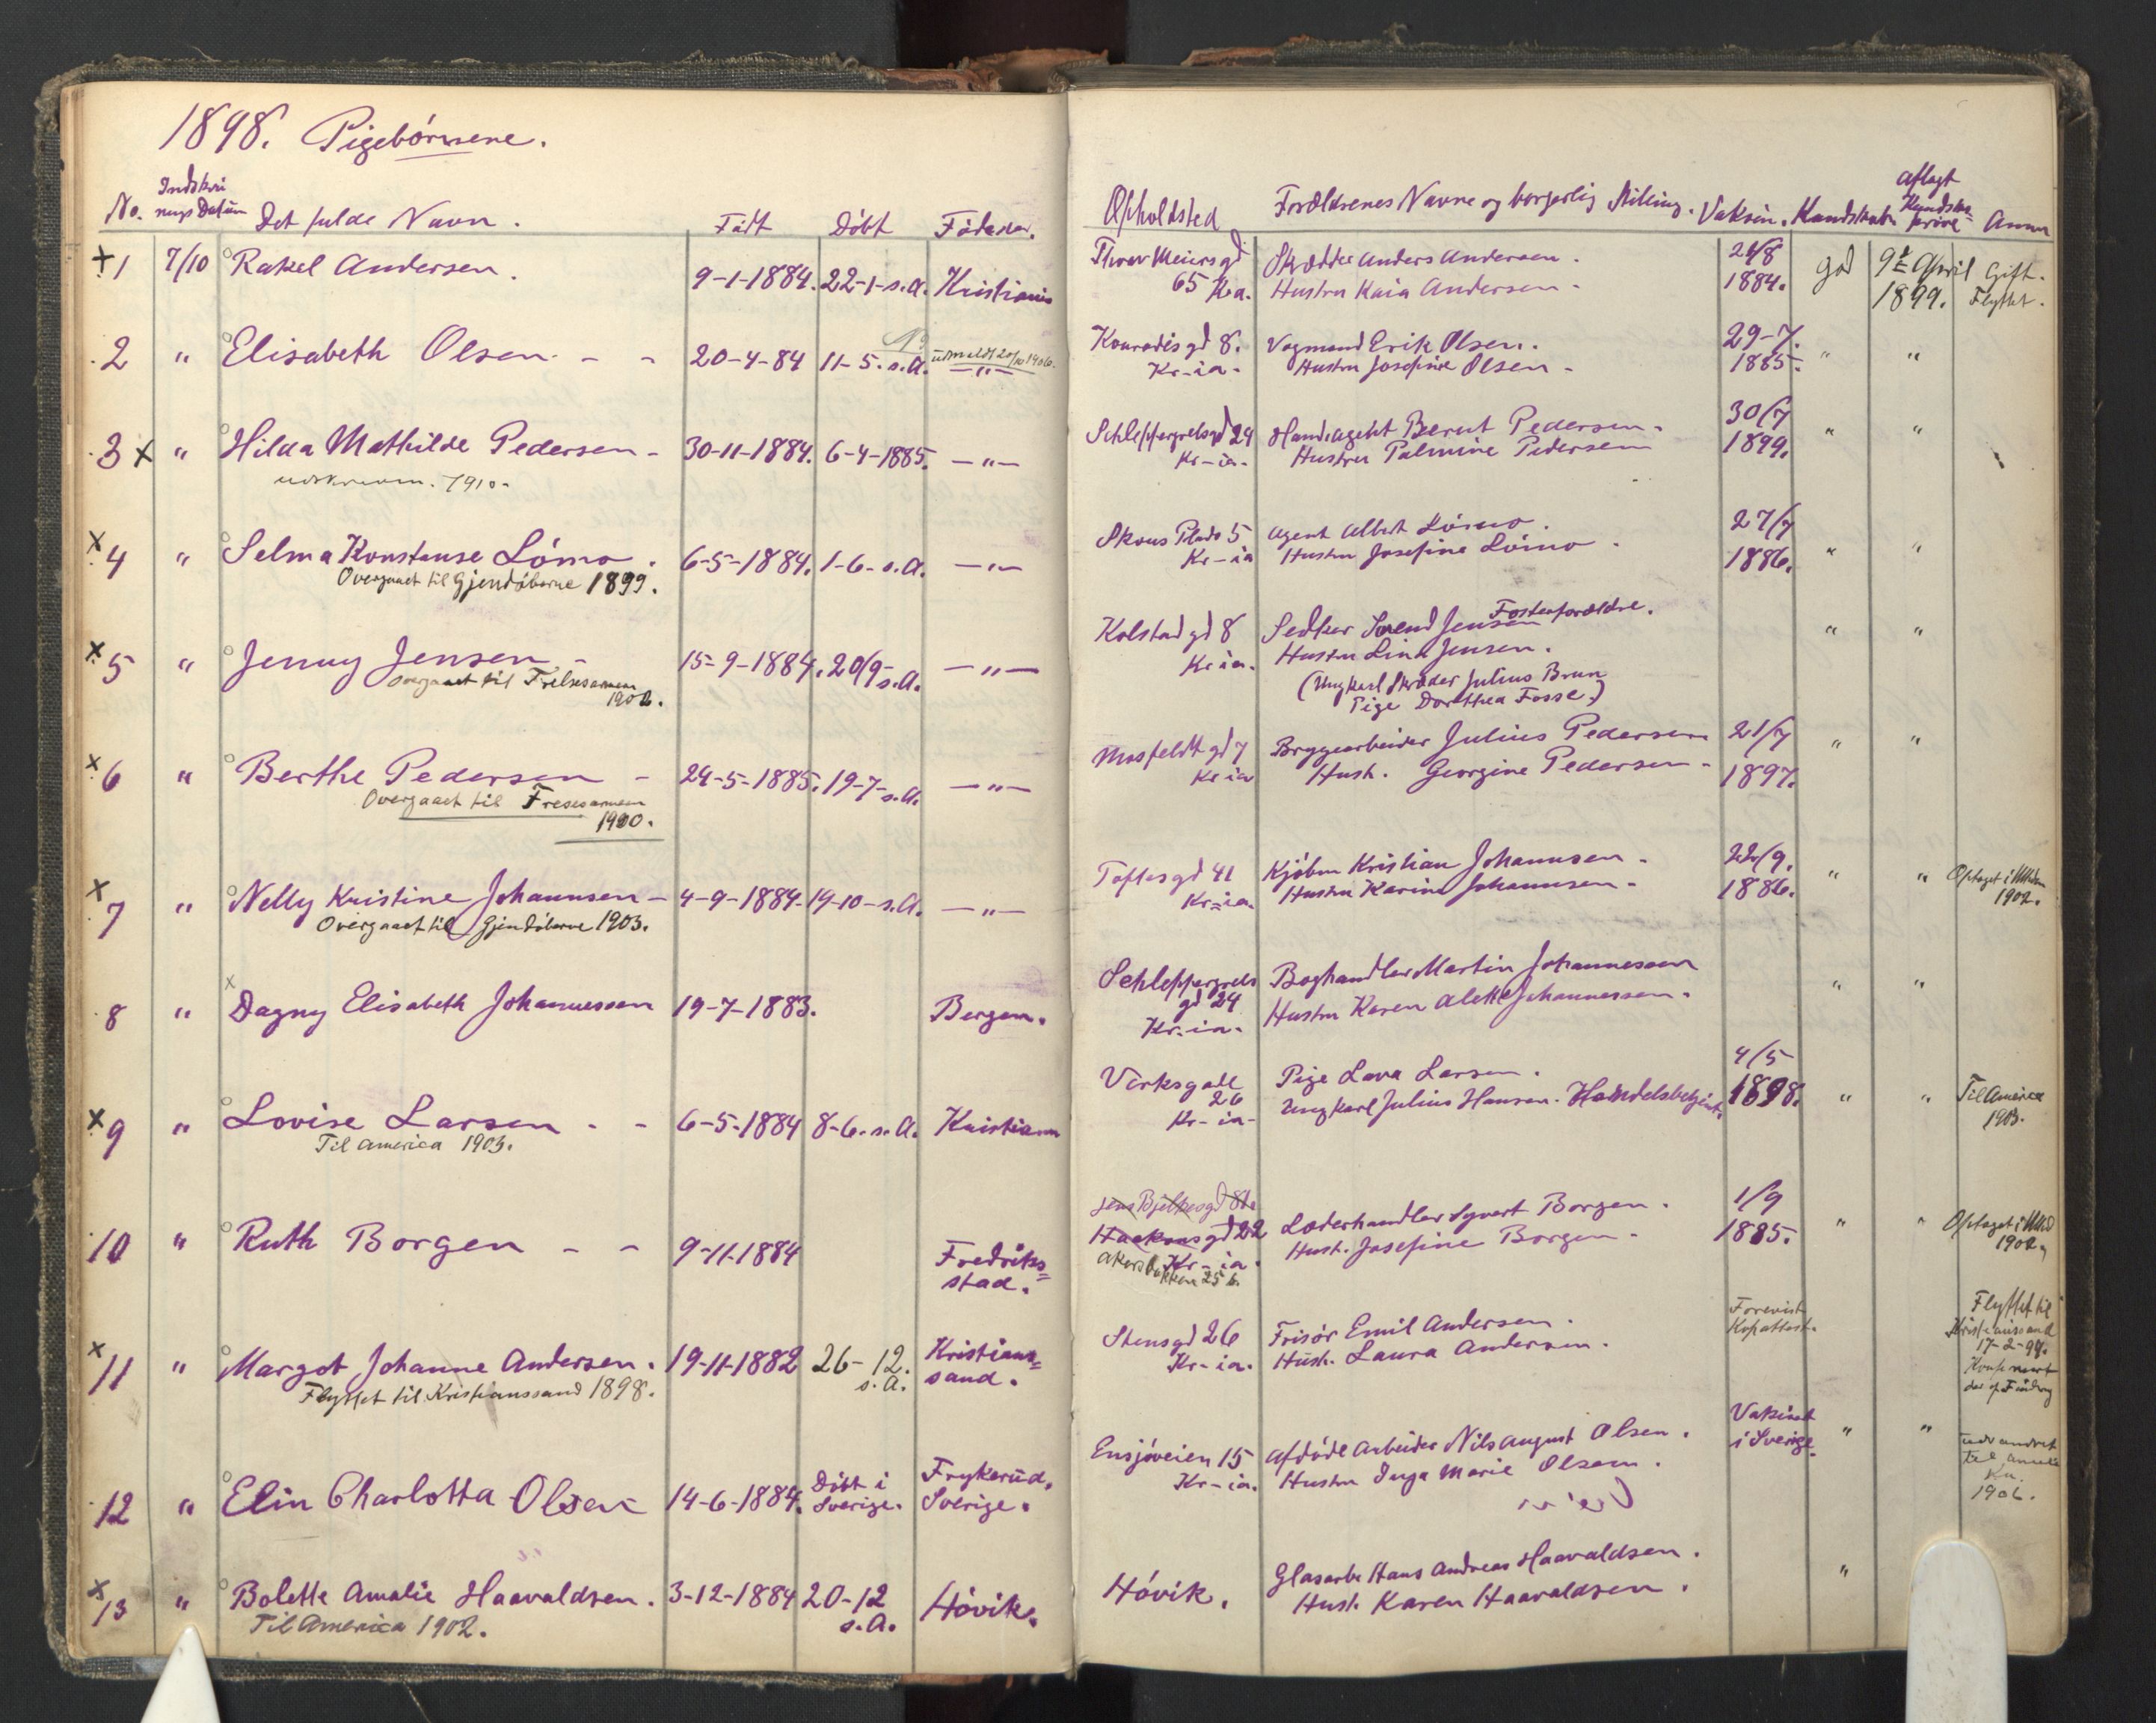 1898. Pigebörnene.
No. Indskrivnings Datum Det fulde Navn. Födt Döbt Födested.
1 7/10 Rakel Andersen. 9-1-1884. 22-1-s.A. Kristiania
2 " Elisabeth Olsen - - 20-4-84 11-5. s.A. -"-
udmeldt 20/10 1906.
3 " Hilda Mathilde Pedersen - 30-11-1884. 6-4-1885. -"-
udskreven. 1910.
4 " Selma Konstanse Lömo. 6-5-1884. 1-6-s.A. -"-
Overgaaet til Gjendöberne 1899.
5 " Jenny Jensen - 15-9-1884. 20/9 s.A. -"-
overgaaet til Frelsesarmeen
1902.
6 " Berthe Pedersen - 24-5-1885. 19-7-s.A. -"-
Overgaaet til Fresesarmeen
1900.
7 " Nelly Kristine Johannsen - 4-9-1884. 19-10-s.A. -"-
Overgaaet til Gjendöberne 1903.
8 " Dagny Elisabeth Johannessen 19-7-1883. Bergen.
9 " Lovise Larsen - - 6-5-1884 8-6-s.A. Kristiania
Til America 1903.
10 " Ruth Borgen - - 9-11-1884 Fredriks=
stad.
11 " Margot Johanne Andersen. 19-11-1882 26-12. s.A. Kristians=
sand.
Flyttet til Kristianssand 1898.
12 " Elin Charlotta Olsen 14-6-1884. Döbt i Sverige. Frykerud,
Sverige.
13 " Bolette Amalie Haavaldsen. 3-12-1884 20-12 s.A. Hövik.
Til America 1902.
Opholdsted Forældrenes Navne og borgerlig Stilling. Vaksin. Kundskab Aflagt Kundskabspröve Anm
Thorv Meiersgd Skrædder Anders Andersen. 28/8 god 9de April Gift.
65 Kr.a. Hustru Kaia Andersen. 1884. 1899. Flyttet.
Konradisgd 8. Vogmand Erik Olsen. 29-7. " "
Kr-ia. Hustru Josefine Olsen - 1885.
Schleppegrelsgd 24 Handlsagent Bernt Pedersen. 30/7 " "
Kr-ia. Hustru Palmine Pedersen 1899.
Skous Plads 5 Agent Albert Lömo. 27/7 " "
Kr-ia Hustru Josefine Lömo. 1886.
Fosterforældre.
Kolstadgd 8 Svend Jensen " "
Kr-ia. Hustru Lina Jensen.
(Ungkarl Skræder Julius Brun
Pige Dorthea Fosse.)
Mosfeldtgd 7 Bryggearbeider Julius Pedersen 21/7 " "
Kr-ia Hust. Georgine Pedersen - 1897.
Toftesgd 41 Kjöbm Kristian Johannsen - 22/9. " " Optaget i
Kr=ia. Hustru Karine Johannsen - 1886. 1902.
Schleppegrels Boghandler Martin Johannessen " "
gd 24 Hustru Karen Alette Johannessen.
Kr-ia.
Verksgade Pige Lava Larsen. 4/5
26 Ungkarl Julius Hansen. Handelsbetjent. 1898. " " Til America
Kr-ia- 1903.
Jens Bjelkesgd
Haakonsgd 22 Læderhandler Syvert Borgen. 1/9 " " Optaget i
Kr-ia. Hust. Josefine Borgen - 1885. 1902.
Akersbakken 25 b.
Stensgd 26 Frisör Emil Andersen. Forevist Flyttet til
Kr-ia. Hust. Laura Andersen. Kopattest. Kristianssand
17-2-99.
Ensjöveien 15 Afdöde Arbeider Nils August Olsen. Vaksinert " "
Kr-ia. Hustru Inga Marie Olsen. i Sverige. udvandret
til
1906.
Hövik. Glasarb. Hans Andreas Haavaldsen. "
Hust. Karen Haavaldsen.